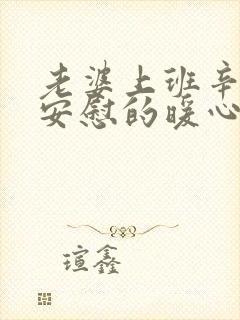 老婆上班辛
安慰的暖心
瑄鑫